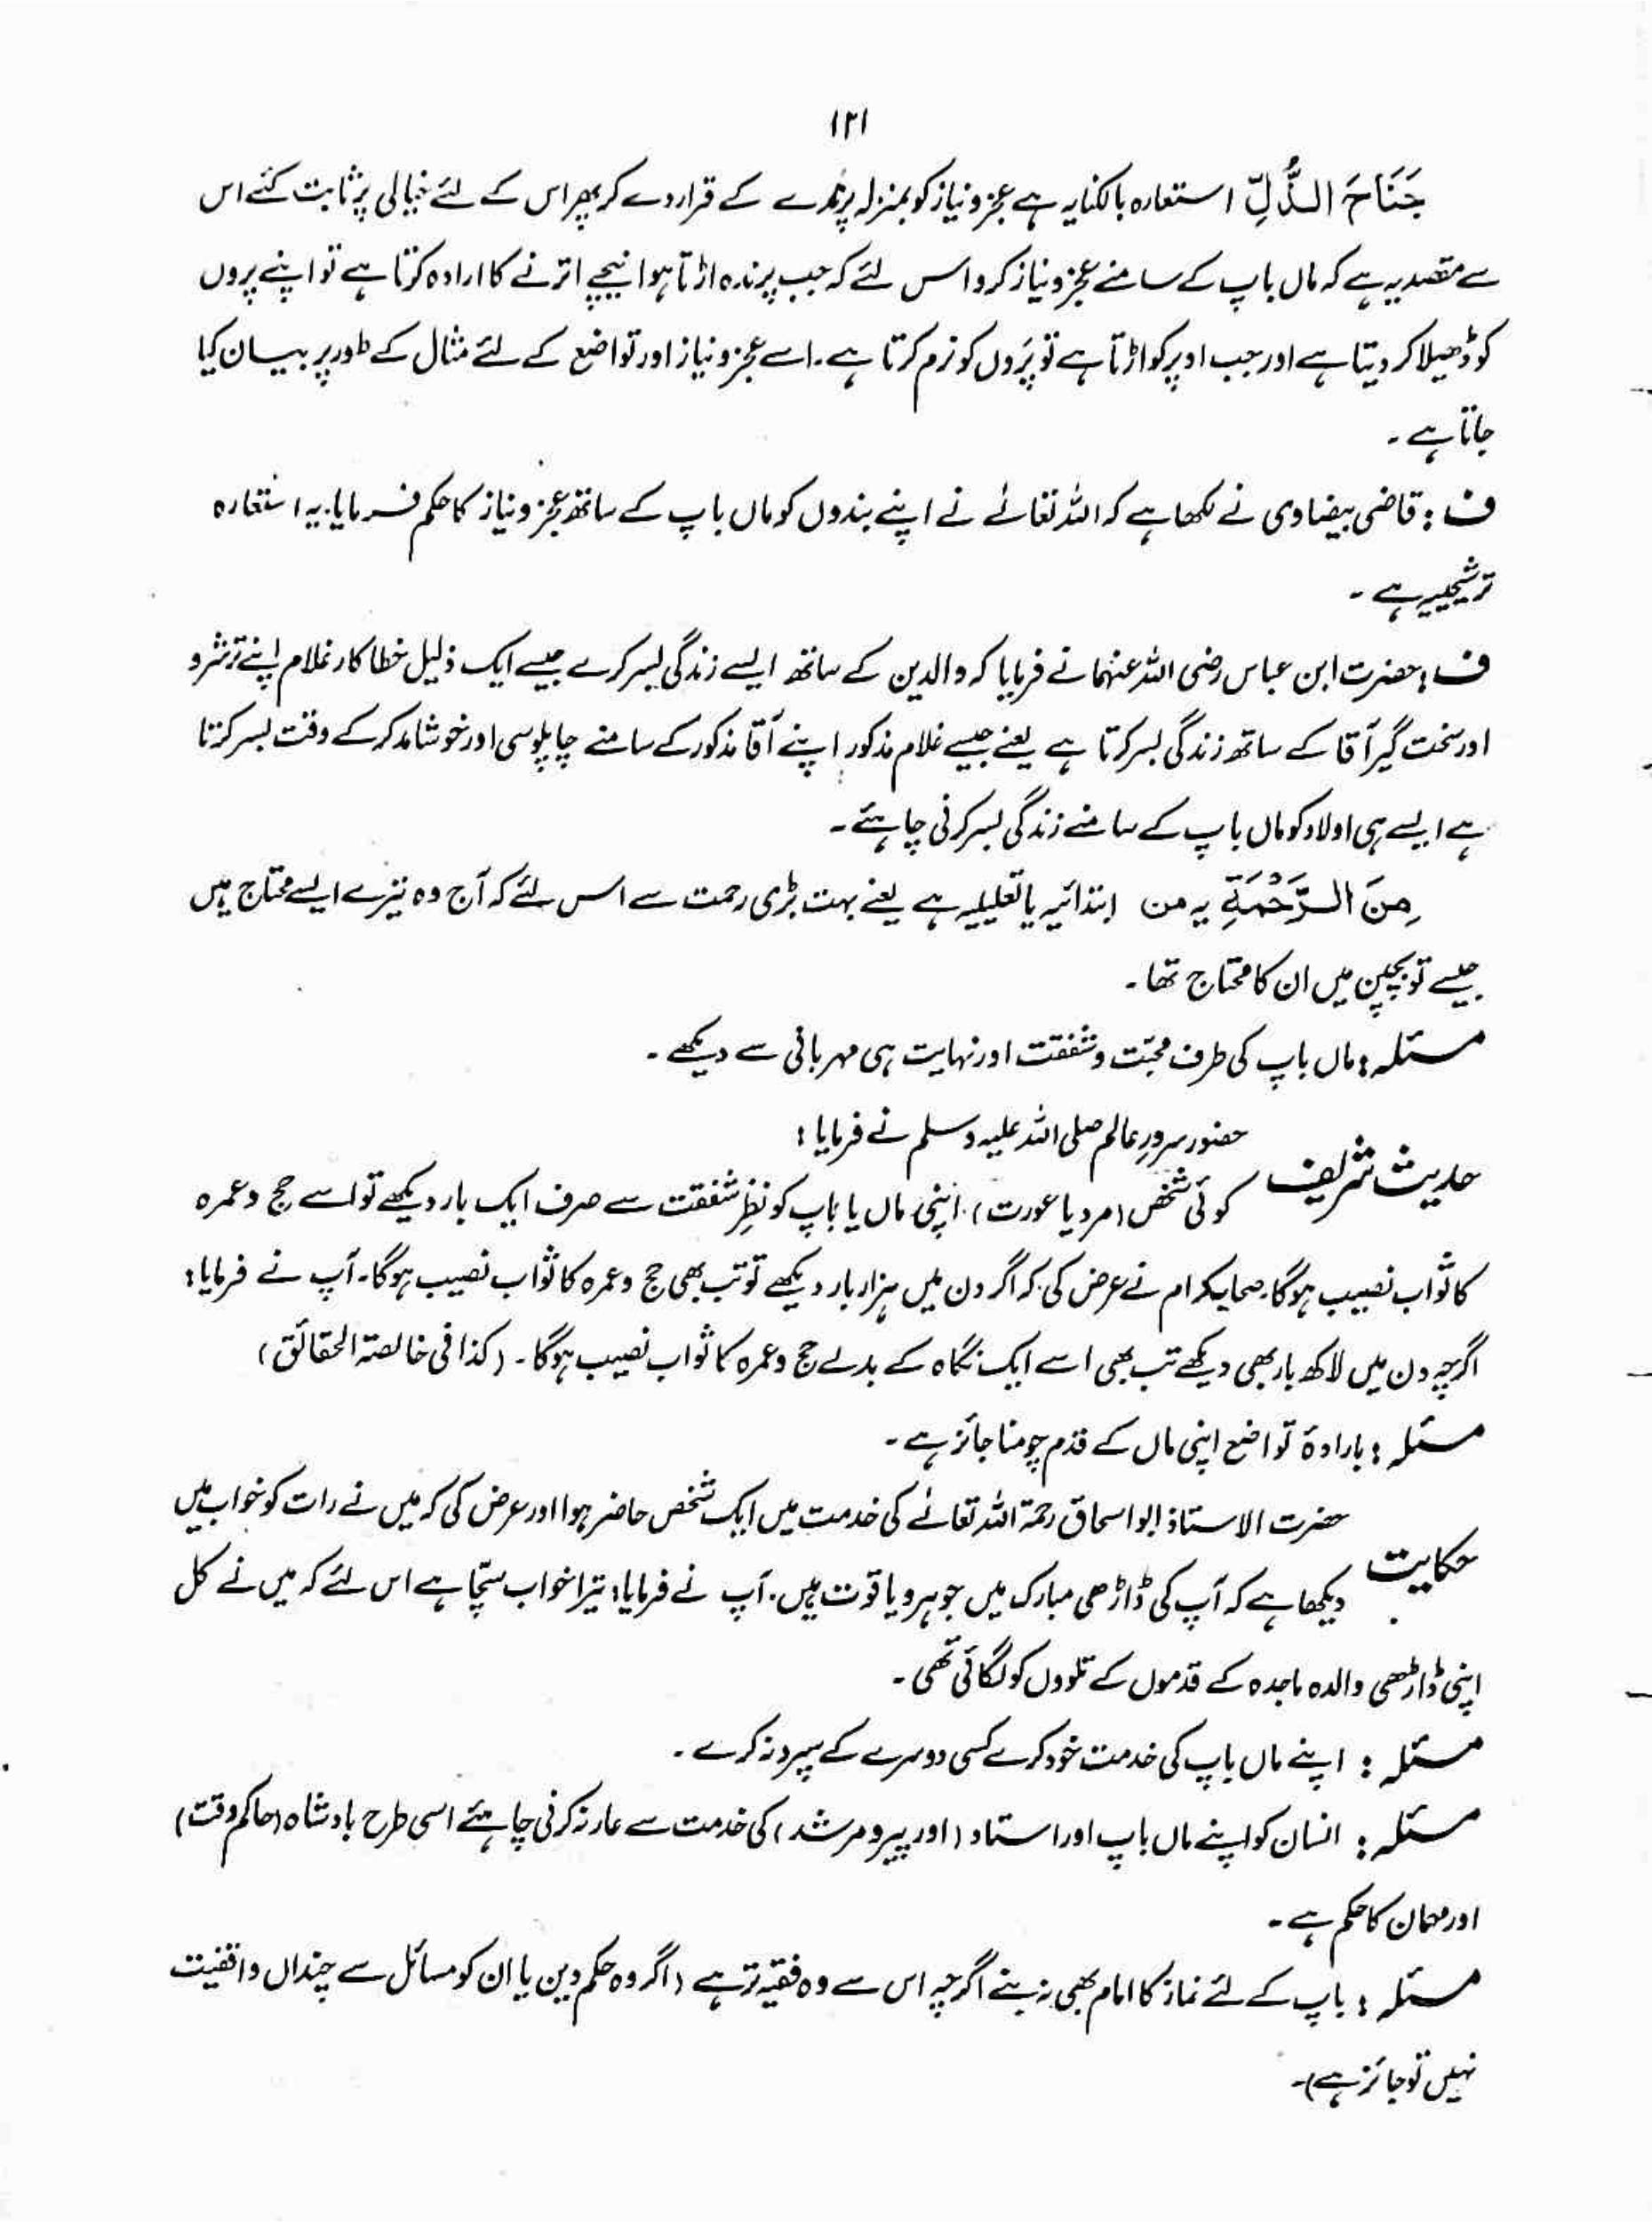 ۱۲۱
جَنَاحَ الذُّلِّ استعارہ بالکنایہ ہے عجز و نیاز کو بمنزلہ پرندے کے قرار دے کر پھر اس کے لئے خیالی پر ثابت کئے اس
سے مقصد یہ ہے کہ ماں باپ کے سامنے عجز و نیاز کرو اس لئے کہ جب پرندہ اڑتا ہوا نیچے اترنے کا ارادہ کرتا ہے تو اپنے پروں
کو ڈھیلا کر دیتا ہے اور جب اوپر کو اڑتا ہے تو پَروں کو نرم کرتا ہے۔ اسے عجز و نیاز اور تواضع کے لئے مثال کے طور پر بیان کیا
جاتا ہے ۔
ف : قاضی بیضاوی نے لکھا ہے کہ اللہ تعالےٰ نے اپنے بندوں کو ماں باپ کے ساتھ عجز و نیاز کا حکم فرمایا۔ یہ استعارہ
ترشیحیہ ہے ۔
ف : حضرت ابن عباس رضی اللہ عنہما نے فرمایا کہ والدین کے ساتھ ایسے زندگی بسر کرے جیسے ایک ذلیل خطا کار غلام اپنے ترشرو
اور سخت گیر آقا کے ساتھ زندگی بسر کرتا ہے یعنے جیسے غلام مذکور اپنے آقا مذکور کے سامنے چاپلوسی اور خوشامد کر کے وقت بسر کرتا
ہے ایسے ہی اولاد کو ماں باپ کے سامنے زندگی بسر کرنی چاہئے ۔
مِنَ الرَّحْمَةِ یہ من ابتدائیہ یا تعلیلیہ ہے یعنے بہت بڑی رحمت سے اس لئے کہ آج وہ تیرے ایسے محتاج ہیں
جیسے تو بچپن میں ان کا محتاج تھا ۔
مسئلہ : ماں باپ کی طرف محبّت و شفقت اور نہایت ہی مہربانی سے دیکھے ۔
حضور سرورِ عالم صلی اللہ علیہ وسلم نے فرمایا :
حدیث شریف کوئی شخص (مرد یا عورت) اپنی ماں یا باپ کو نظرِ شفقت سے صرف ایک بار دیکھے تو اسے حج و عمرہ
کا ثواب نصیب ہوگا۔ صحابہ کرام نے عرض کی کہ اگر دن میں ہزار بار دیکھے تو تب بھی حج و عمرہ کا ثواب نصیب ہوگا۔ آپ نے فرمایا :
اگرچہ دن میں لاکھ بار بھی دیکھے تب بھی اسے ایک نگاہ کے بدلے حج و عمرہ کا ثواب نصیب ہوگا ۔ (کذا فی خالصۃ الحقائق)
مسئلہ : بارادۂ تواضع اپنی ماں کے قدم چومنا جائز ہے ۔
حضرت الاستاذ ابو اسحاق رحمۃ اللہ تعالےٰ کی خدمت میں ایک شخص حاضر ہوا اور عرض کی کہ میں نے رات کو خواب میں
حکایت دیکھا ہے کہ آپ کی ڈاڑھی مبارک میں جوہر و یاقوت ہیں۔ آپ نے فرمایا : تیرا خواب سچّا ہے اس لئے کہ میں نے کل
اپنی ڈاڑھی والدہ ماجدہ کے قدموں کے تلووں کو لگائی تھی ۔
مسئلہ : اپنے ماں باپ کی خدمت خود کرے کسی دوسرے کے سپرد نہ کرے ۔
مسئلہ : انسان کو اپنے ماں باپ اور استاد (اور پیر و مرشد) کی خدمت سے عار نہ کرنی چاہئے اسی طرح بادشاہ (حاکم وقت)
اور مہمان کا حکم ہے ۔
مسئلہ : باپ کے لئے نماز کا امام بھی نہ بنے اگرچہ اس سے وہ فقیہ تر ہے (اگر وہ حکم دیں یا ان کو مسائل سے چنداں واقفیت
نہیں تو جائز ہے)۔